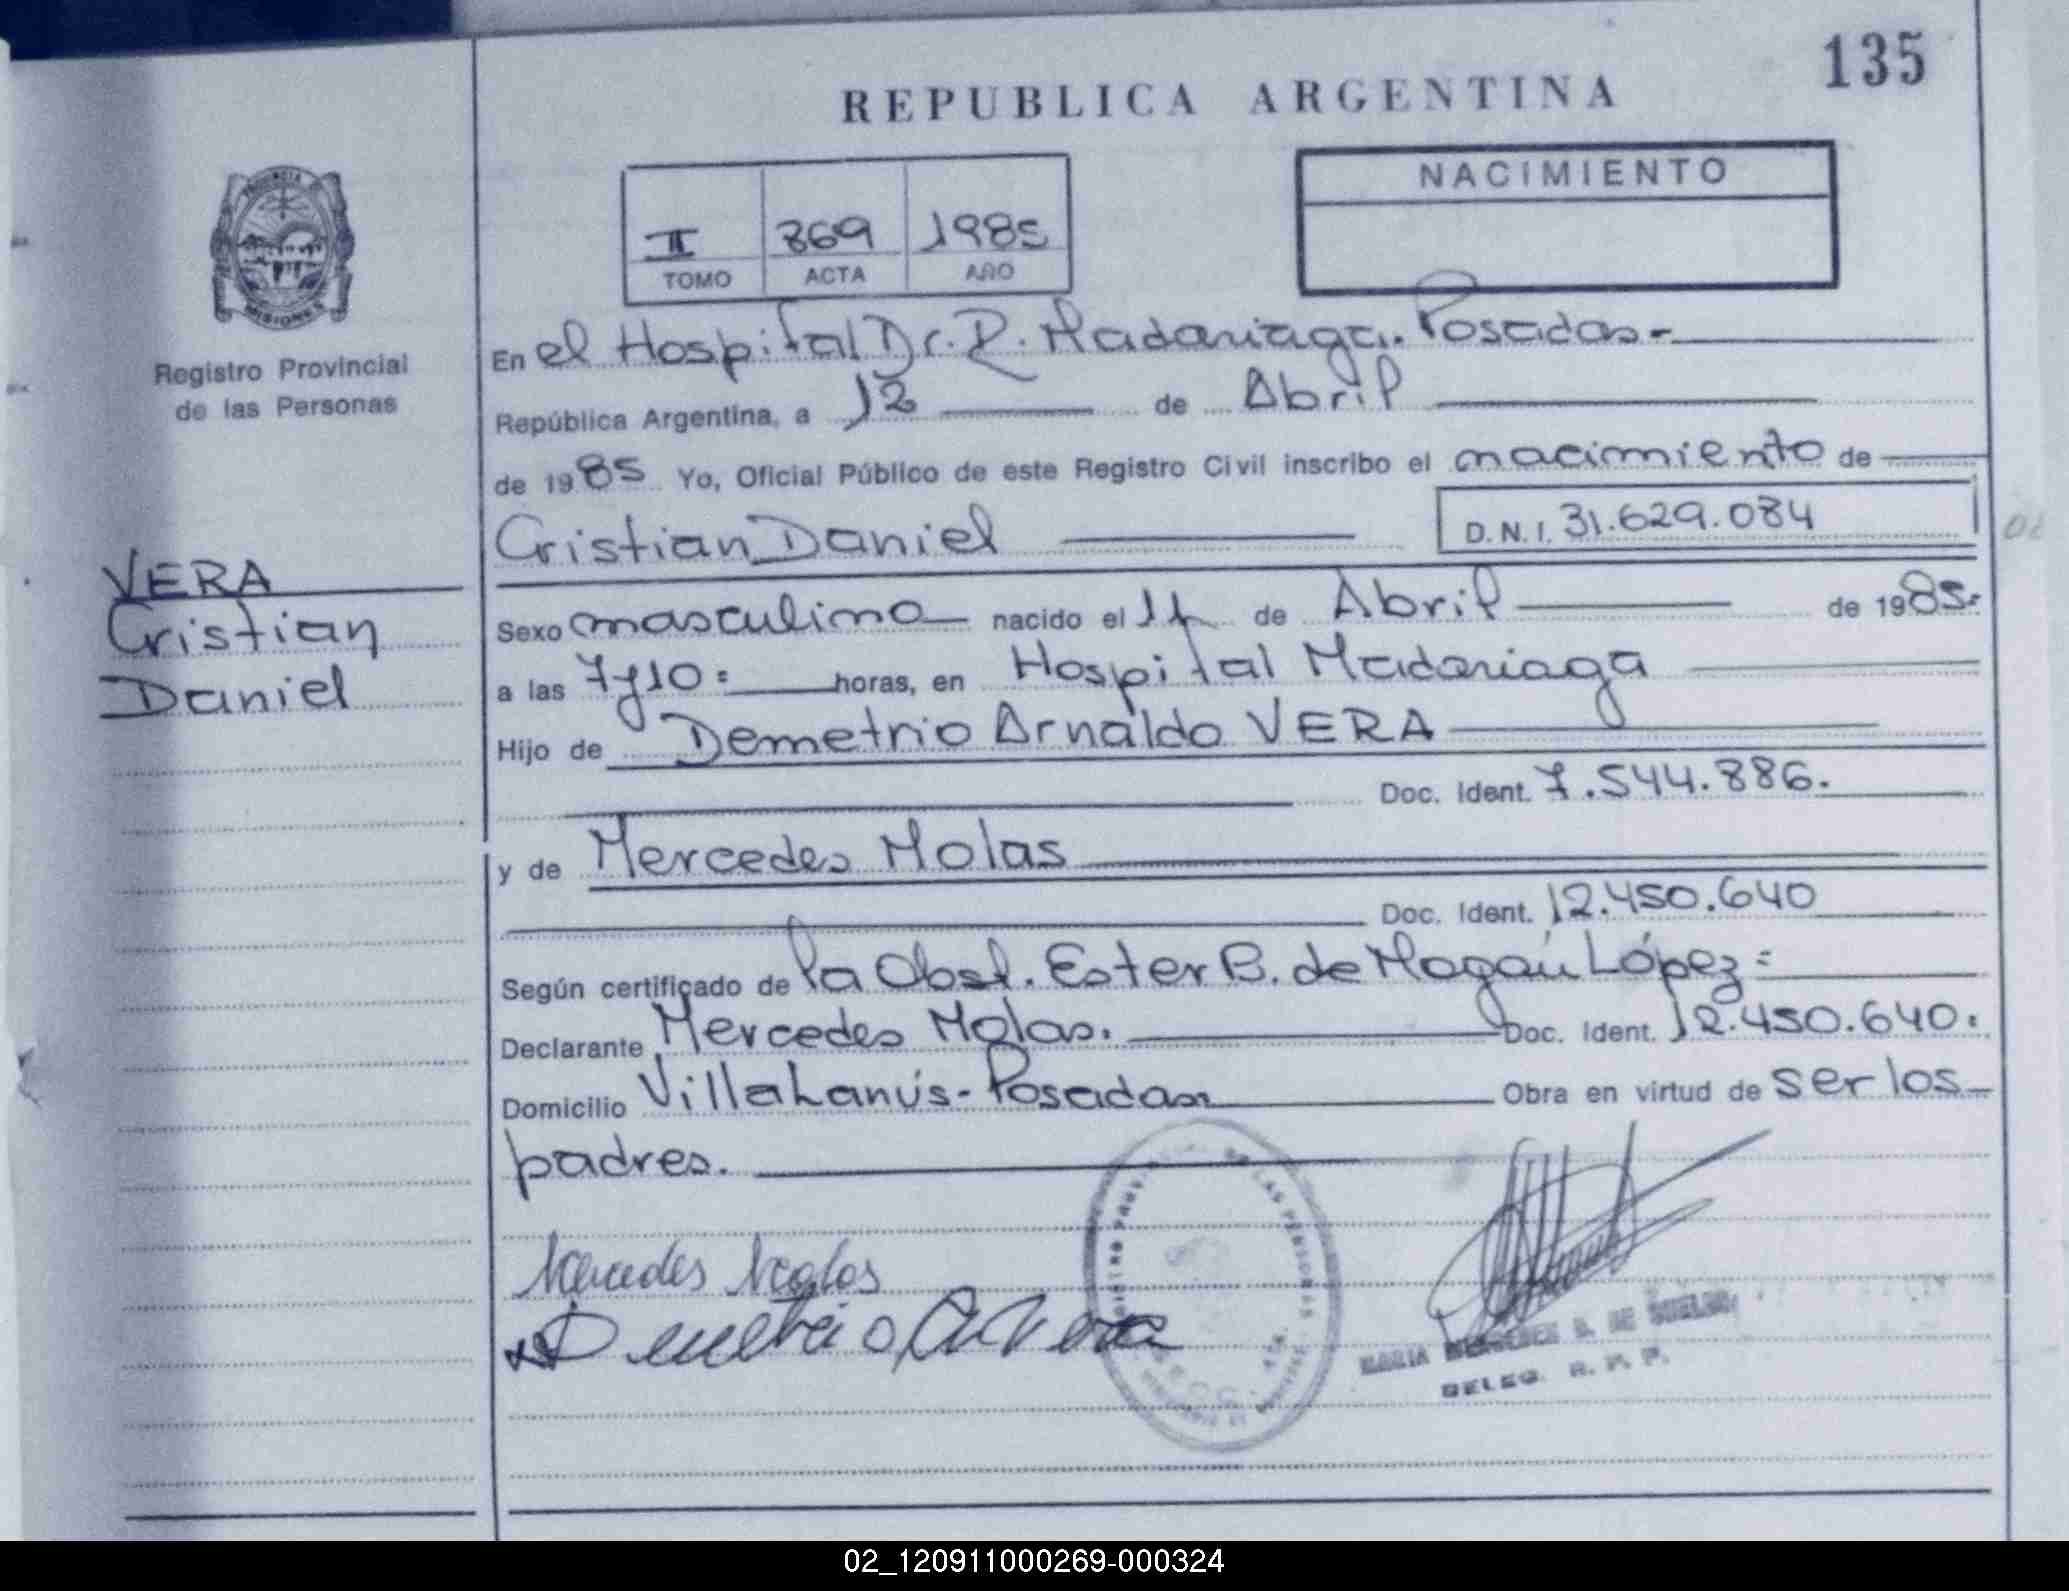 135
REPUBLICA ARGENTINA
NACIMIENTO
II 869 1985
TOMO ACTA AÑO
PROVINCIA DE
MISIONES
Registro Provincial
de las Personas
En el Hospital Dr. R. Madariaga. Posadas.-
República Argentina, a 12 de Abril
de 1985 Yo, Oficial Público de este Registro Civil inscribo el nacimiento de
Cristian Daniel D.N.I. 31.629.084
VERA
Cristian
Daniel
Sexo masculino nacido el 11 de Abril de 1985.
a las 7y10= horas, en Hospital Madariaga
Hijo de Demetrio Arnaldo VERA
Doc. Ident. 7.544.886.
y de Mercedes Molas
Doc. Ident. 12.450.640
Según certificado de la Obst. Ester B. de Magaú López=
Declarante Mercedes Molas. Doc. Ident. 12.450.640.
Domicilio Villa Lanús - Posadas Obra en virtud de ser los
padres.
Mercedes Molas
Demetrio A Vera
DE LAS PERSONAS
MARIA MERCEDES DE
DELEG. R. P. P.
02_120911000269-000324